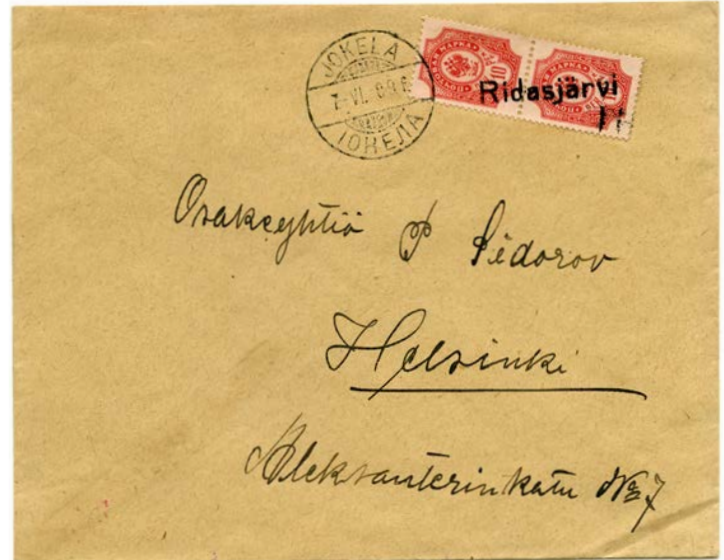 JOKELA
7-VI.
ІОКЕЛА
МАРКА
10
Ridasjärvi
Osakeyhtiö P Sidorov
Helsinki
Aleksanterinkatu № 7